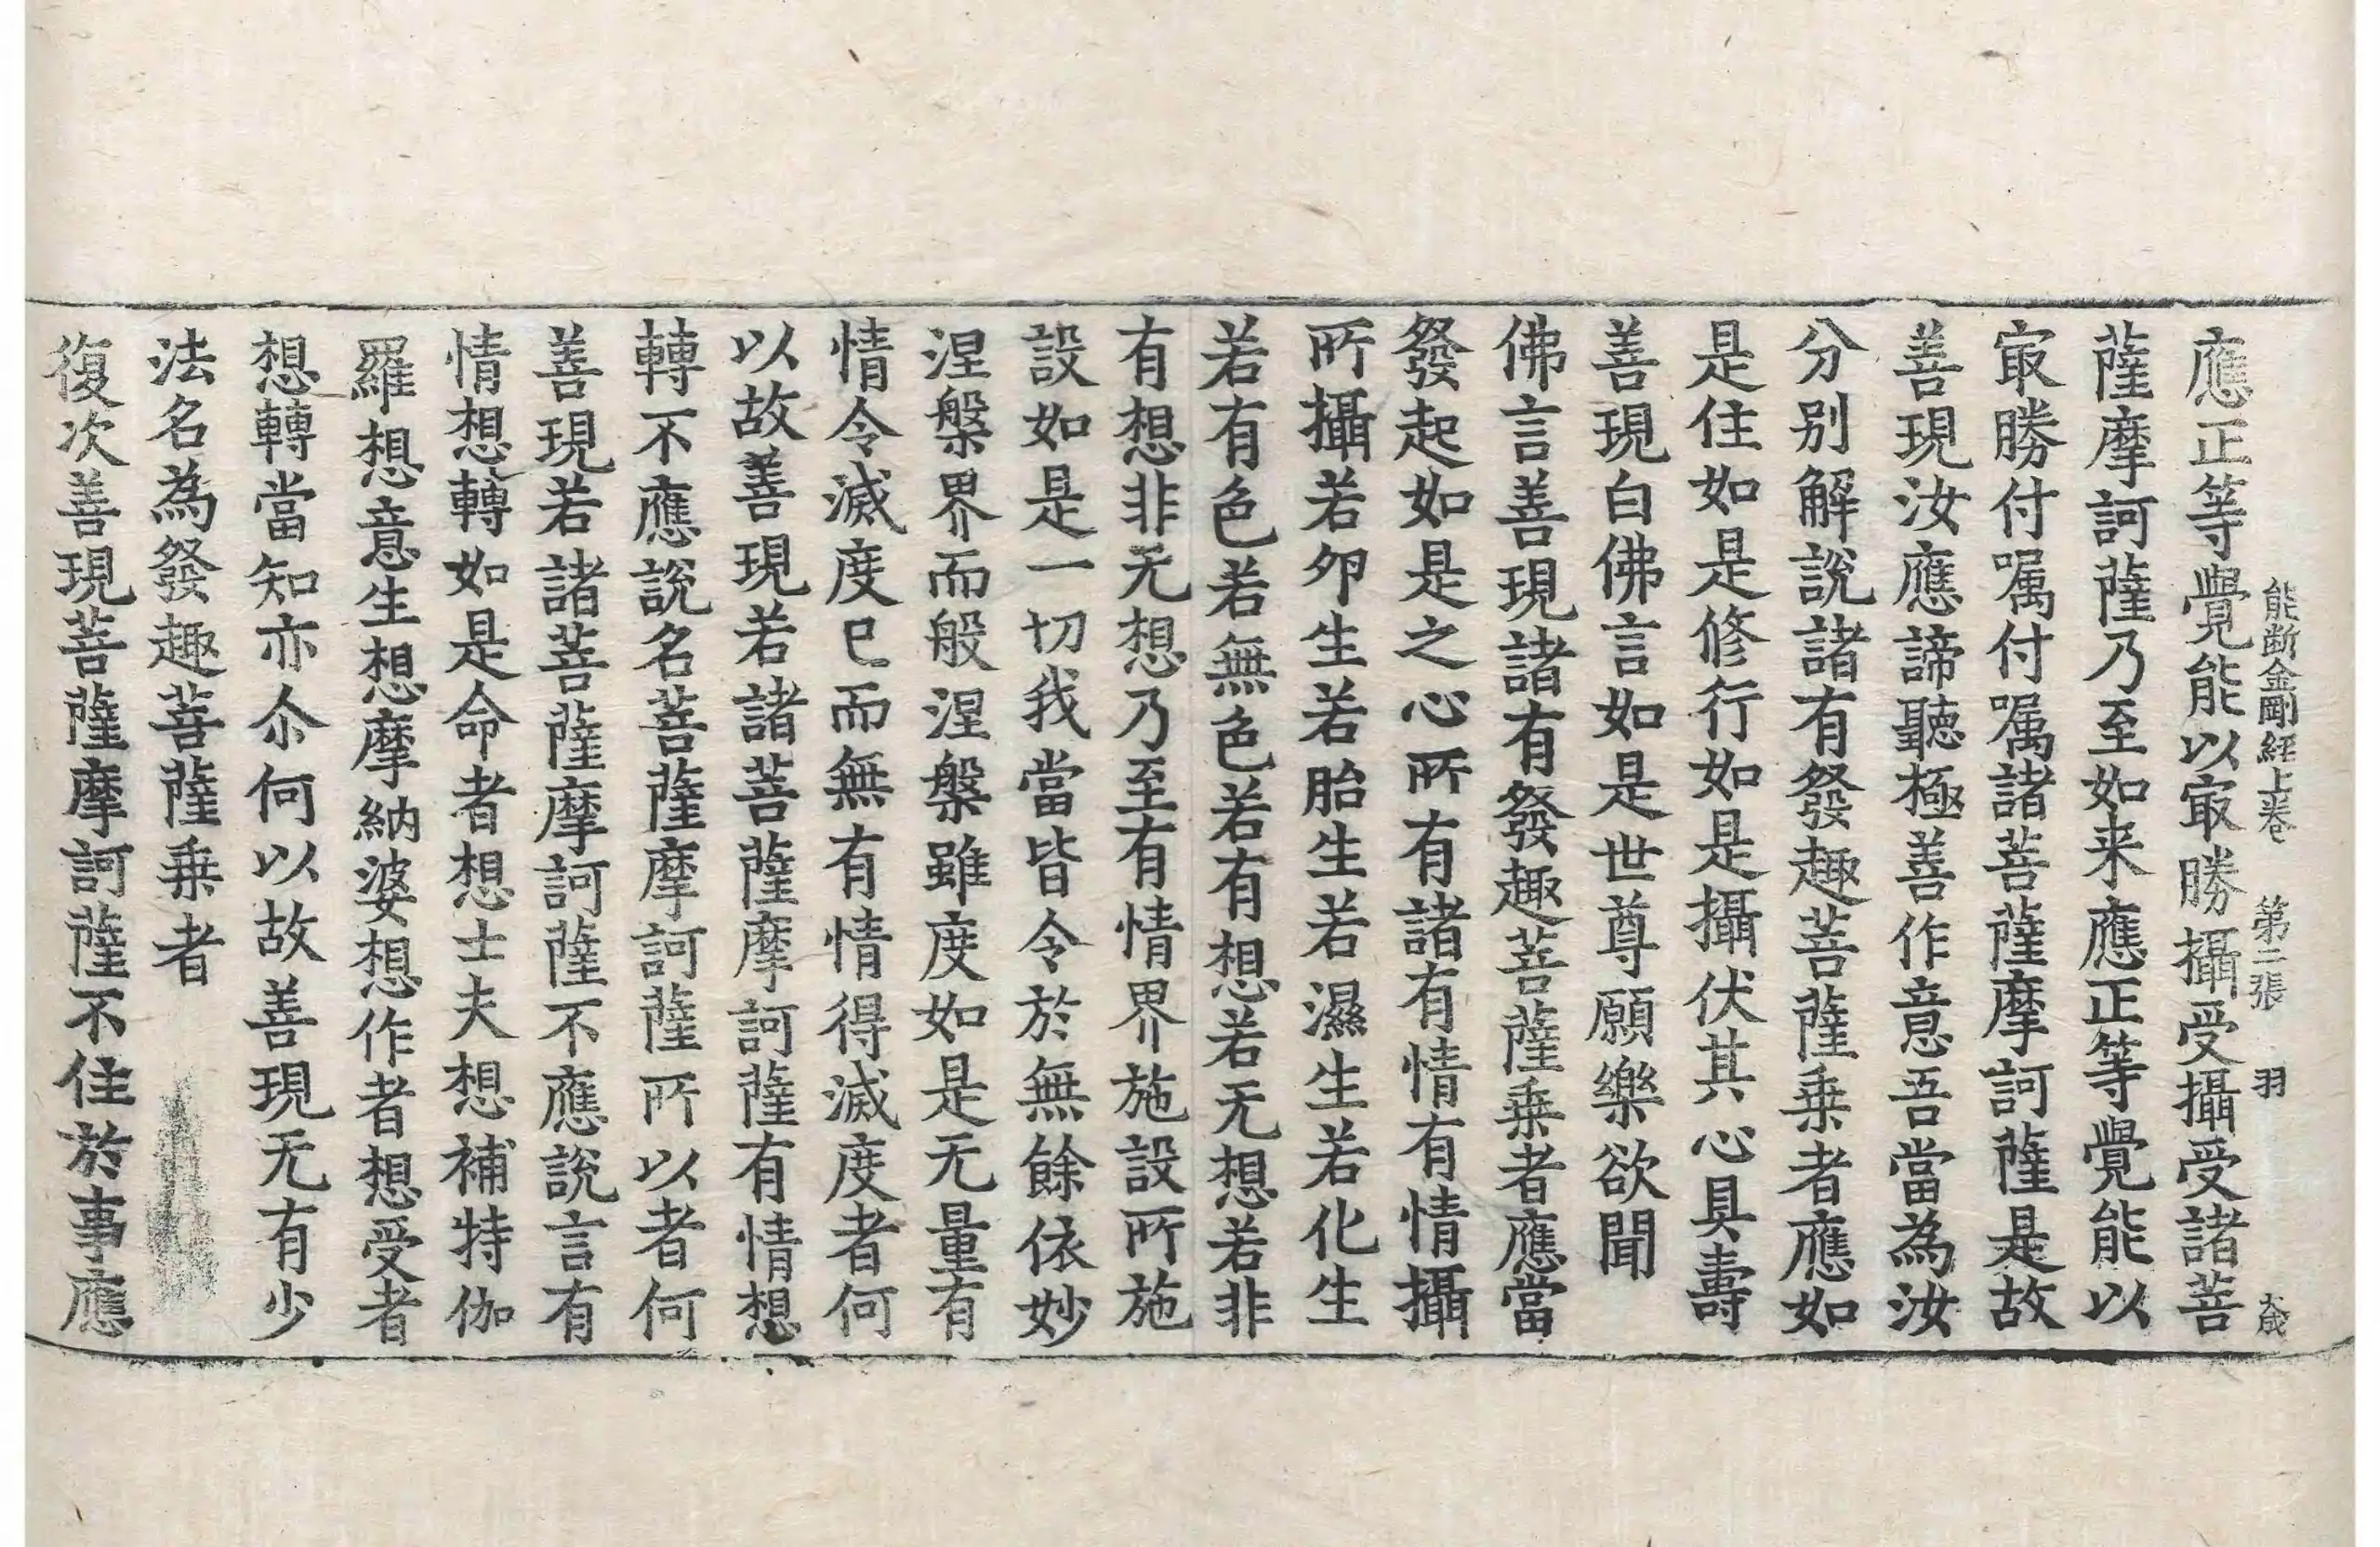 能断金剛経上巻 第二張 羽
應正等覺能以冣勝攝受攝受諸菩
薩摩訶薩乃至如来應正等覺能以
冣勝付嘱付嘱諸菩薩摩訶薩是故
善現汝應諦聽極善作意吾當為汝
分别解說諸有發趣菩薩乗者應如
是住如是修行如是攝伏其心具壽
善現白佛言如是世尊願樂欲聞
佛言善現諸有發趣菩薩乗者應當
發起如是之心所有諸有情有情攝
所攝若卵生若胎生若濕生若化生
若有色若無色若有想若无想若非
有想非无想乃至有情界施設所施
設如是一切我當皆令於無餘依妙
涅槃界而般涅槃雖度如是无量有
情令滅度已而無有情得滅度者何
以故善現若諸菩薩摩訶薩有情想
轉不應說名菩薩摩訶薩所以者何
善現若諸菩薩摩訶薩不應說言有
情想轉如是命者想士夫想補特伽
羅想意生想摩納婆想作者想受者
想轉當知亦尒何以故善現无有少
法名為發趣菩薩乗者
復次善現菩薩摩訶薩不住於事應